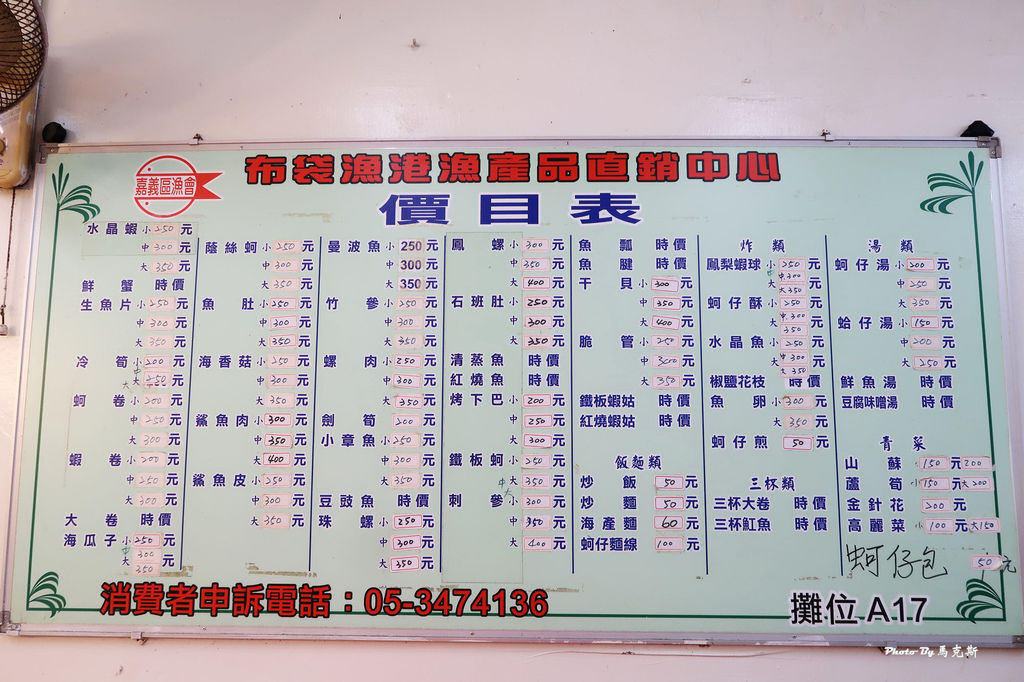 布袋漁港漁產品直銷中心
嘉義區漁會
價目表
水晶蝦 小 250 元
中 300 元
大 350 元
鮮蟹 時價
生魚片 小 250 元
中 300 元
大 350 元
冷筍 小 200 元
中大 250 元
蚵卷 小 200 元
中 250 元
大 300 元
蝦卷 小 200 元
中 250 元
大 300 元
大卷 時價
海瓜子 小 250 元
中 300 元
大 350
蔭絲蚵 小 250 元
中 300 元
大 350 元
魚肚 小 250 元
中 300 元
大 350 元
海香菇 小 250 元
中 300 元
大 350 元
鯊魚肉 小 300 元
中 350 元
大 400 元
鯊魚皮 小 250 元
中 300 元
大 350 元
曼波魚 小 250 元
中 300 元
大 350 元
竹參 小 250 元
中 300 元
大 350 元
螺肉 小 250 元
中 300 元
大 350 元
劍筍 200 元
小章魚 小 250 元
中 300 元
大 350 元
豆豉魚 時價
珠螺 小 250 元
中 300 元
大 350 元
鳳螺 小 300 元
中 350 元
大 400 元
石斑肚 小 250 元
中 300 元
大 350 元
清蒸魚 時價
紅燒魚 時價
烤下巴 小 200 元
中 250 元
大 300 元
鐵板蚵 小 250 元
中大 350 元
刺參 小 300 元
中 350 元
大 400 元
魚瓢 時價
魚腱 時價
干貝 小 300 元
中 350 元
大 400 元
脆管 小 250 元
中 300 元
大 350 元
鐵板蝦蛄 時價
紅燒蝦蛄 時價
飯麵類
炒飯 50 元
炒麵 50 元
海產麵 60 元
蚵仔麵線 100 元
炸類
鳳梨蝦球 小 250 元
中 中.300 元
大 大 350
蚵仔酥 小 250 元
大 中.300 元
350
水晶魚 小 250 元
中 中 300 元
大 大 350
椒鹽花枝 時價
魚卵 小 300 元
大 350 元
蚵仔煎 50 元
三杯類
三杯大卷 時價
三杯魟魚 時價
湯類
蚵仔湯 小 200 元
中 250 元
大 350 元
蛤仔湯 小 150 元
中 200 元
大 250 元
鮮魚湯 時價
豆腐味噌湯 時價
青菜
山蘇 小 150 元 大 200
蘆筍 小 150 元 大 200
金針花 200 元
高麗菜 小 100 元 大 150
蚵仔包 50 元
消費者申訴電話：05-3474136
攤位 A17
Photo By 馬克斯